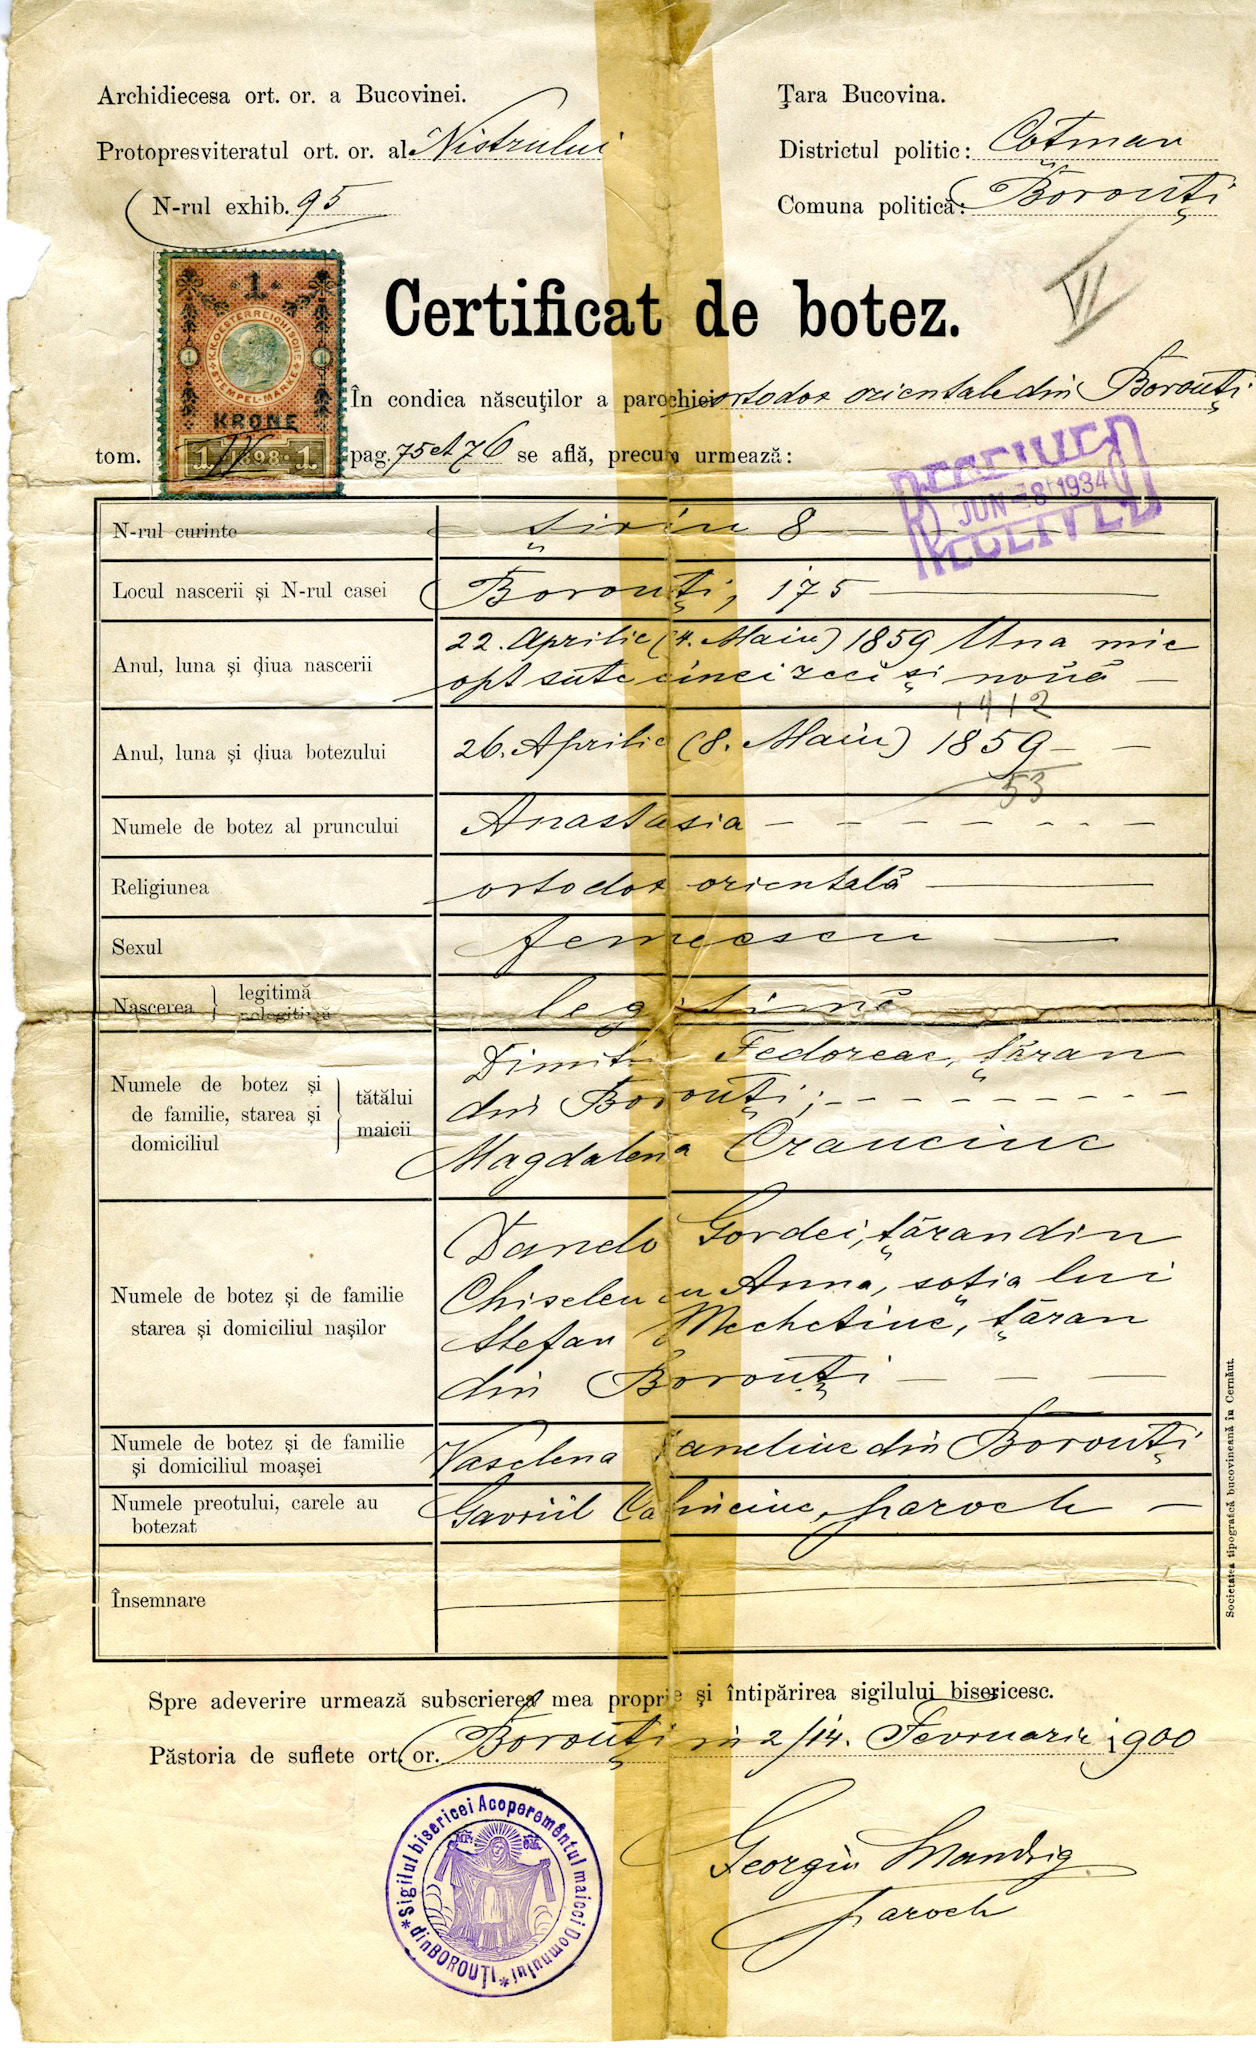 Archidiecesa ort. or. a Bucovinei.
Țara Bucovina.
Protopresviteratul ort. or. al Nistrului
Districtul politic: Coțman
N-rul exhib. 95
Comuna politică: Borouți
VII
1
K.K. OESTERREICHISCHE STEMPEL-MARKE
1 1
KRONE
1 · 1898 · 1
Certificat de botez.
În condica născuților a parochiei ortodox orientale din Borouți
tom. IV pag. 75 et 76 se află, precum urmează:
RECEIVED
JUN - 8 1934
N-rul curinte șiriu 8
Locul nascerii și N-rul casei Borouți, 175
Anul, luna și diua nascerii 22. Aprilie (4. Maiu) 1859 Una mie
opt sute cinci zeci și nouă
1912
Anul, luna și diua botezului 26. Aprilie (8. Maiu) 1859
53
Numele de botez al pruncului Anastasia
Religiunea ortodox orientală
Sexul femeescu
Nascerea } legitimă nelegitimă legitimă
Numele de botez și de familie, starea și domiciliul } tătălui maicii
Dimitri Fedoreac, țăran
din Borouți;
Magdalena Crauciuc
Numele de botez și de familie
starea și domiciliul nașilor
Danelo Gordei, țăran din
Chiseleu cu Anna, soția lui
Stefan Mechetiuc, țăran
din Borouți
Numele de botez și de familie
și domiciliul moașei
Vaselena Daneliuc din Borouți
Numele preotului, carele au
botezat
Gavriil Calinciuc, paroch
Însemnare
Societatea tipografică bucovineană în Cernăuț.
Spre adeverire urmează subscrierea mea proprie și întipărirea sigilului bisericesc.
Păstoria de suflete ort. or. Borouți in 2/14. Fevruarie 1900
Sigilul bisericei Acoperemêntul maicei Domnului
din BOROUȚI
Georgiu Mandrig
paroch